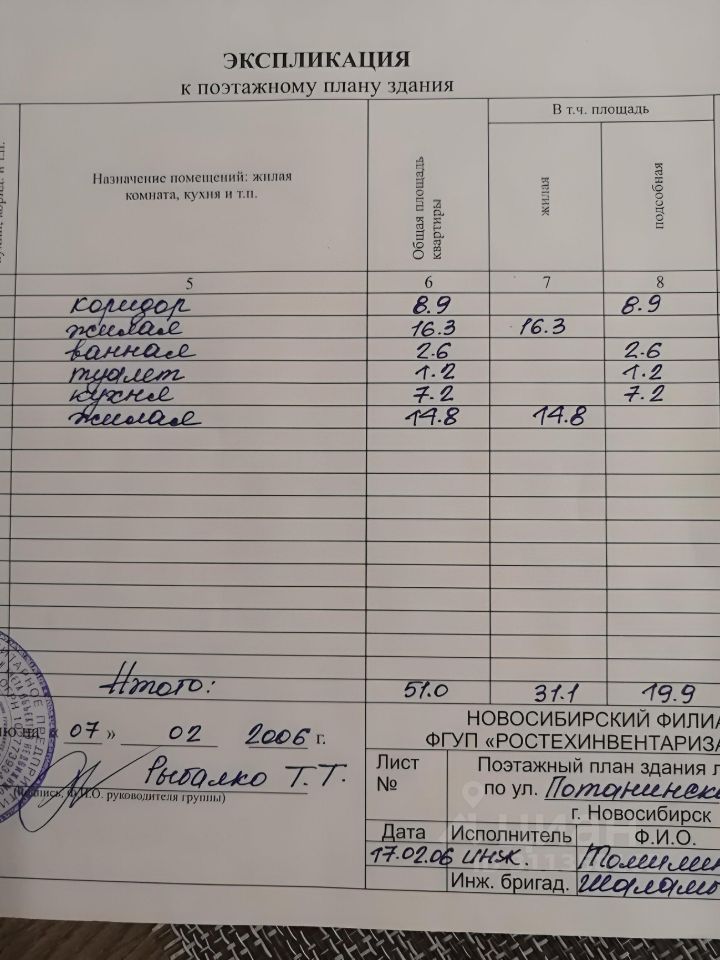 ЭКСПЛИКАЦИЯ
к поэтажному плану здания
Назначение помещений: жилая
комната, кухня и т.п.
Общая площадь
квартиры
В т.ч. площадь
жилая
подсобная
5 6 7 8
коридор 8.9 8.9
жилая 16.3 16.3
ванная 2.6 2.6
туалет 1.2 1.2
кухня 7.2 7.2
жилая 14.8 14.8
Итого: 51.0 31.1 19.9
на « 07 » 02 2006 г.
Рыбалко Т.Т.
Ф.И.О. руководителя группы)
НОВОСИБИРСКИЙ ФИЛИА
ФГУП «РОСТЕХИНВЕНТАРИЗА
Лист
№
Поэтажный план здания л
по ул. Потанинска
г. Новосибирск
Дата Исполнитель Ф.И.О.
17.02.06 инж. Томилин
Инж. бригад.
циан